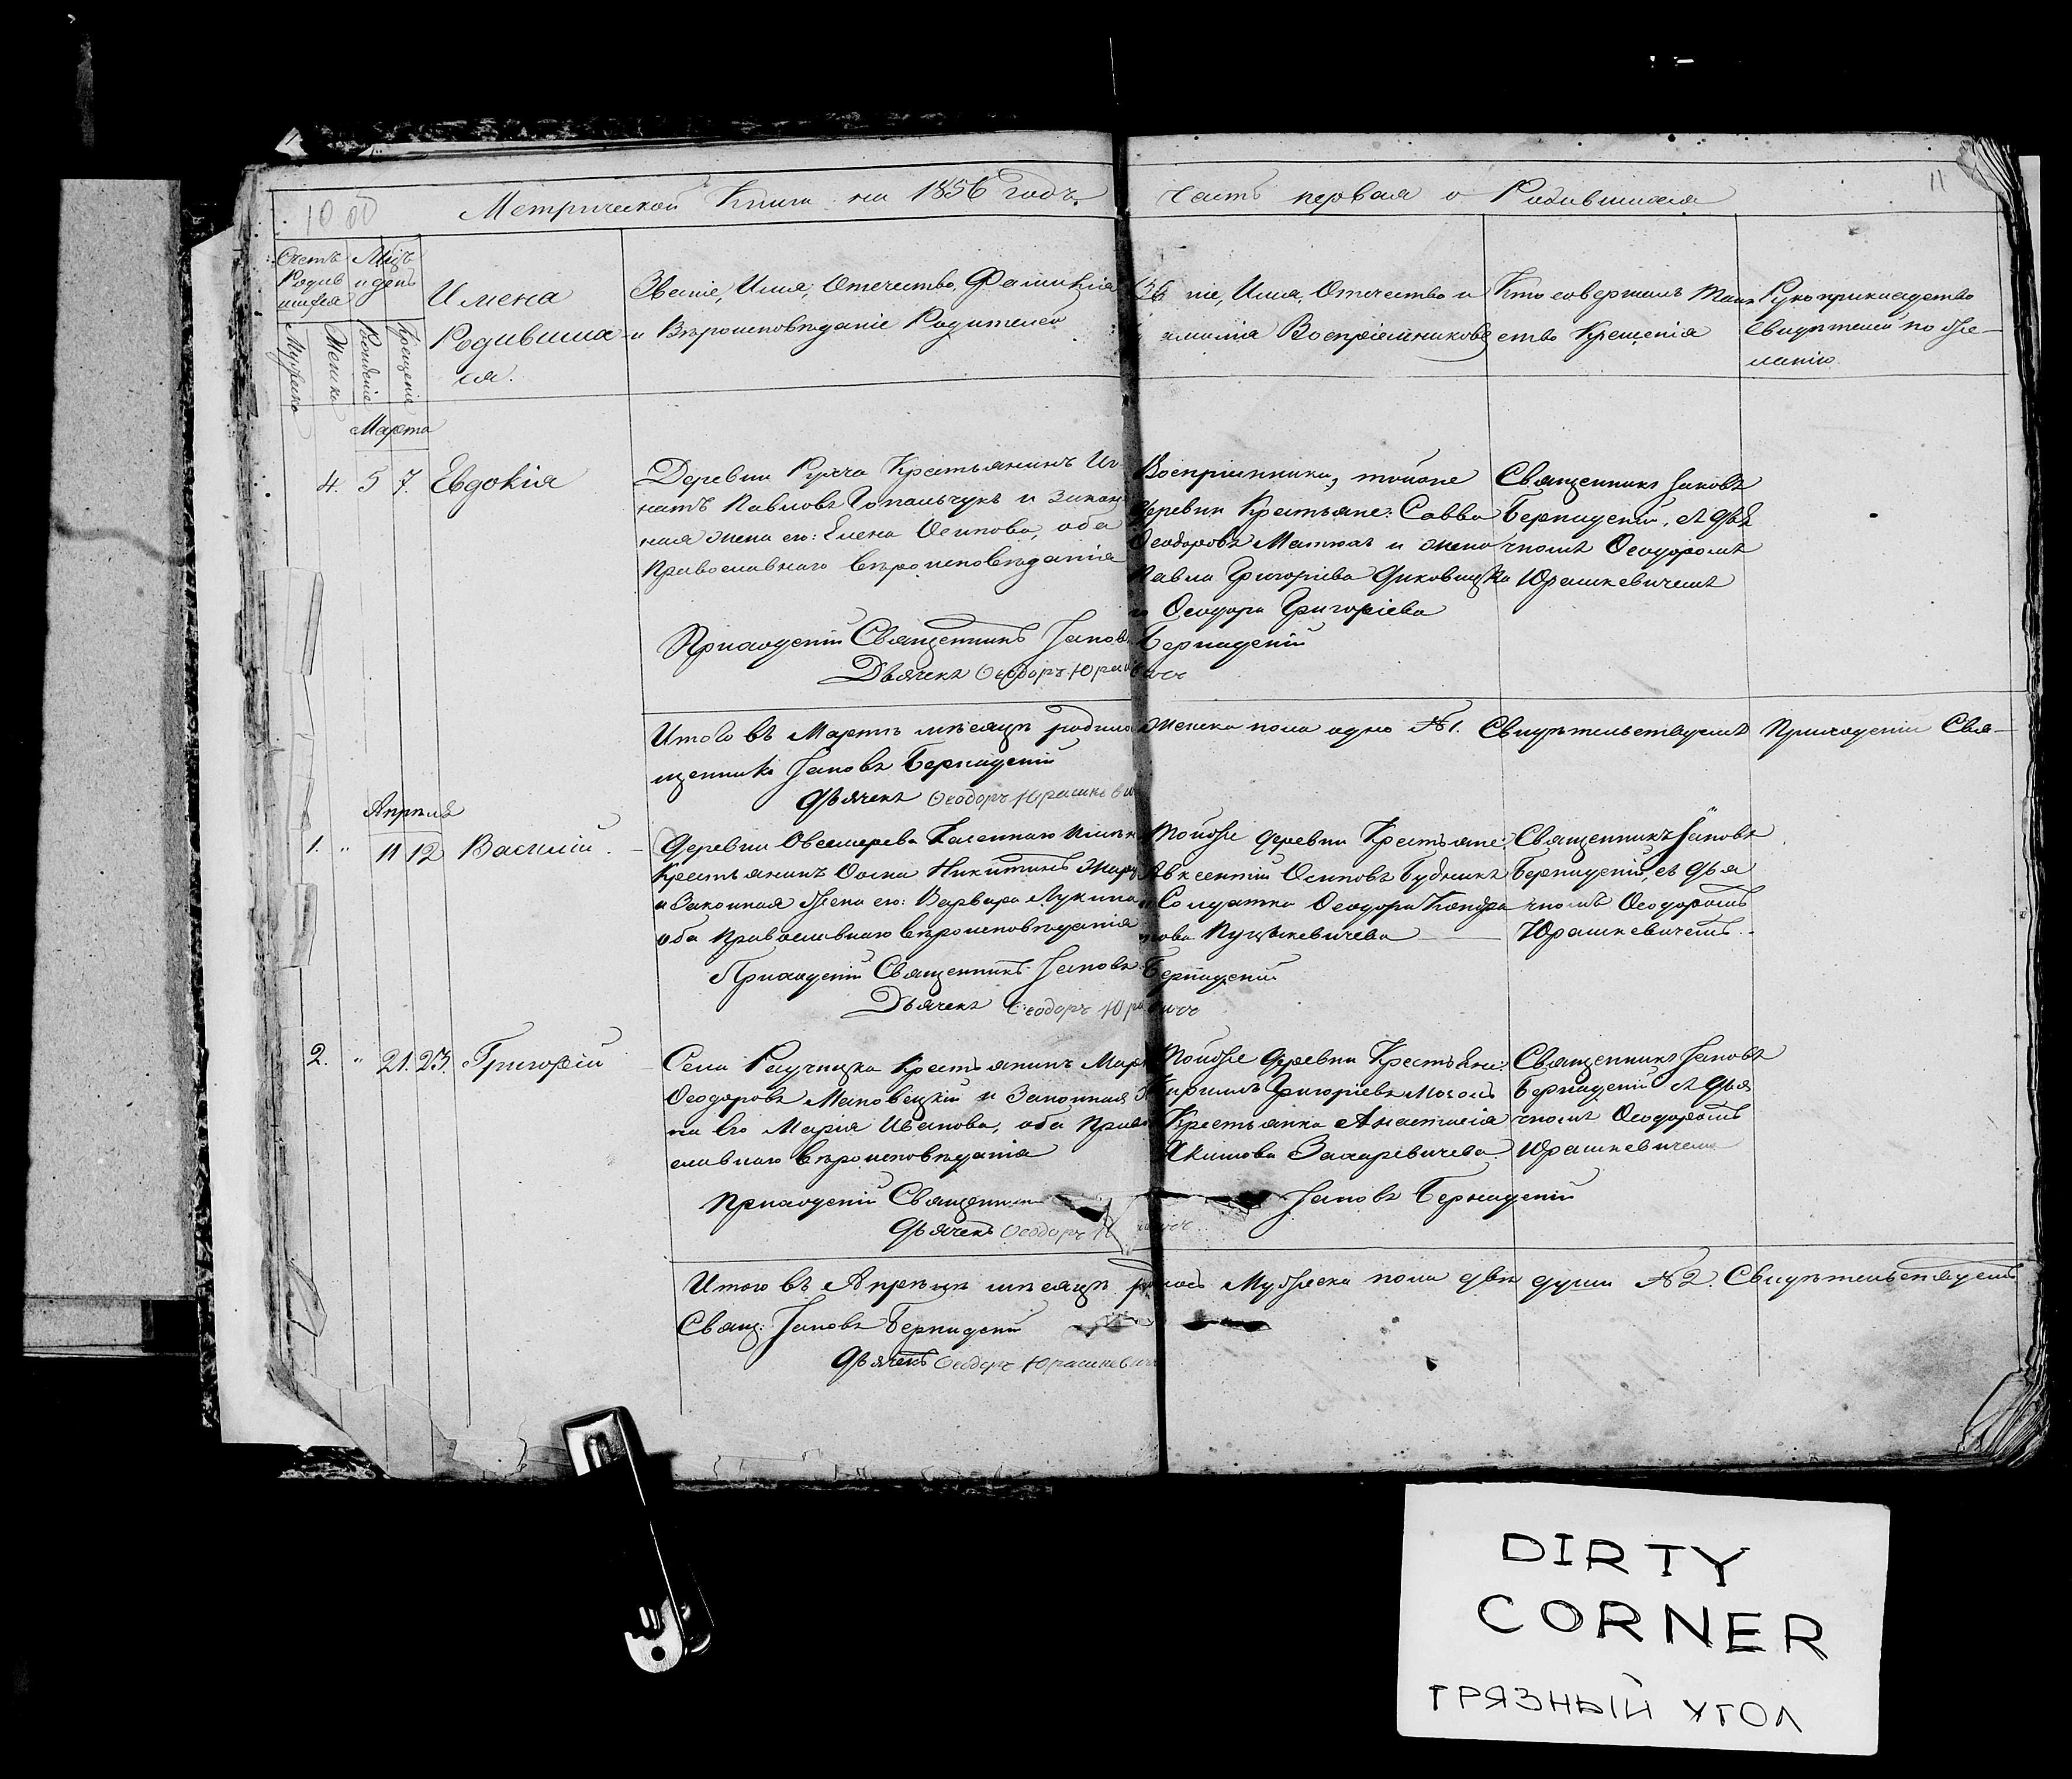 Метрической Книги на 1856 годъ. Часть первая о Родившихся
11
Счетъ Родив шихся
Мцъ и день
Имена Родивших ся.
Званіе, Имя, Отчество, Фамилія
и Вѣроисповѣданіе Родителей
Зв ніе, Имя, Отчество и
амилія Воспріемниковъ
Кто совершилъ Таин
ство Крещенія
Рукоприкладство
свидѣтелей по же-
ланію
Мужеска
Женска
Рожденія
Крещенія
Марта
4. 5 7. Евдокія
Деревни Рухча Крестьянинъ Иг
натъ Павловъ Гопальчукъ и закон
ная жена его: Елена Осипова, оба
Православнаго вѣроисповѣданія
Воспріемники, тойже
деревни Крестьяне: Савва
Ѳеодоровъ Матюхъ и жена
Павла Григоріева Диковицка
го Ѳеодора Григоріева
Священникъ Іаковъ
Бернадскій, съ Дья
чкомъ Ѳеодоромъ
Юрашкевичемъ
Приходскій Священникъ Іаковъ Бернадскій
Дьячекъ Ѳеодоръ Юра вичъ
Итого въ Мартѣ мѣсяцѣ родило женска пола одно №1. Свидѣтельствуемъ Приходскій Свя-
щенникъ Іаковъ Бернадскій
Дьячекъ Ѳеодоръ Юрашкеви
Апрѣля
1. " 11 12 Василій.
Деревни Овсемирова Казеннаго Имѣн
Крестьянинъ Ѳома Никитинъ
и Законная Жена его: Варвара Лукина
оба Православнаго вѣроисповѣданія
Тойже деревни Крестьяне:
Авксентій Осиповъ Будникъ
и Солдатка Ѳеодора Кондра
това Пуцыкевичева
Священникъ Іаковъ
Бернадскій, съ Дья
чкомъ Ѳеодоромъ
Юрашкевичемъ.
Приходскій Священникъ Іаковъ Бернадскій
Дьячекъ Ѳеодоръ Юра вичъ
2. " 21. 23. Григорій
Села Радчицка Крестьянинъ Мар
Ѳеодоровъ Маковецкій и Законная Же
на его Марія Иванова, оба Право
славнаго вѣроисповѣданія
Тойже деревни Крестьяне:
Кирилъ Григоріевъ
Крестьянка Анастасія
Якимова Захаревичева
Священникъ Іаковъ
Бернадскій съ Дья
чкомъ Ѳеодоромъ
Юрашкевичемъ
Приходскій Священник Іаковъ Бернадскій
Дьячекъ Ѳеодоръ Ю
Итого въ Апрѣлѣ мѣсяцѣ р лось Мужеска пола двѣ души №2. Свидѣтельствуемъ
Свящ: Іаковъ Бернадскій
Дьячекъ Ѳеодоръ Юрашкевичъ
DIRTY
CORNER
ГРЯЗНЫЙ УГОЛ